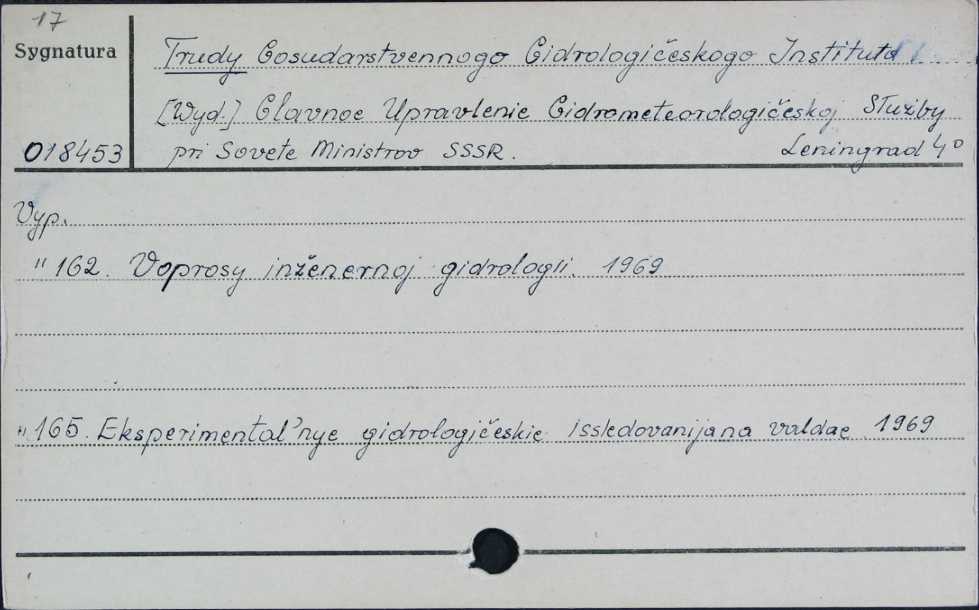 17
Sygnatura
Trudy Gosudarstvennogo Gidrologičeskogo Instituta
[Wyd.] Glavnoe Upravlenie Gidrometeorologičeskoj Služby
018453
pri Sovete Ministrov SSSR. Leningrad 4°
Vyp.
" 162. Voprosy inženernoj gidrologii. 1969
" 165. Eksperimental'nye gidrologičeskie issledovanija na valdae. 1969